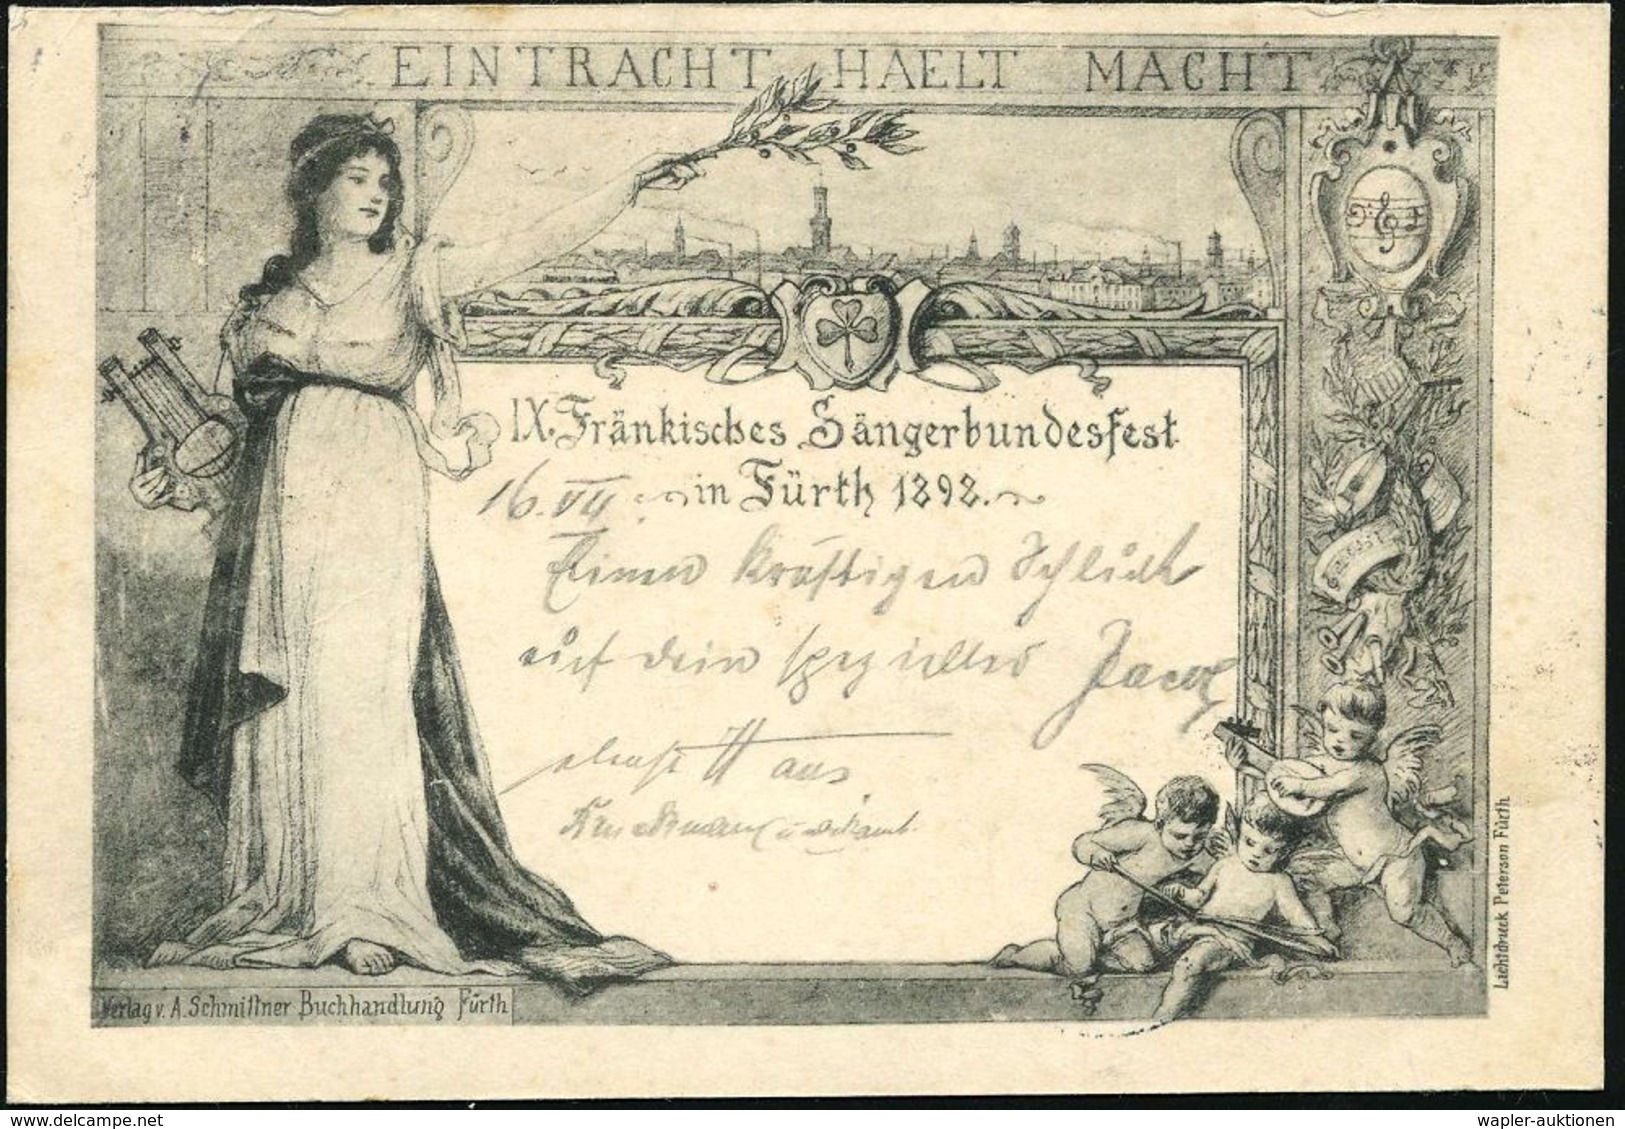 EINTRACHT HAELT MACHT
IX. Fränkisches Sängerbundesfest
in Fürth 1898.
16. VII.
Einen kräftigen Schluck
auf dein spezielles
Haus
Verlag v. A. Schmittner Buchhandlung Fürth
Lichtdruck Peterson Fürth.
wapler-auktionen